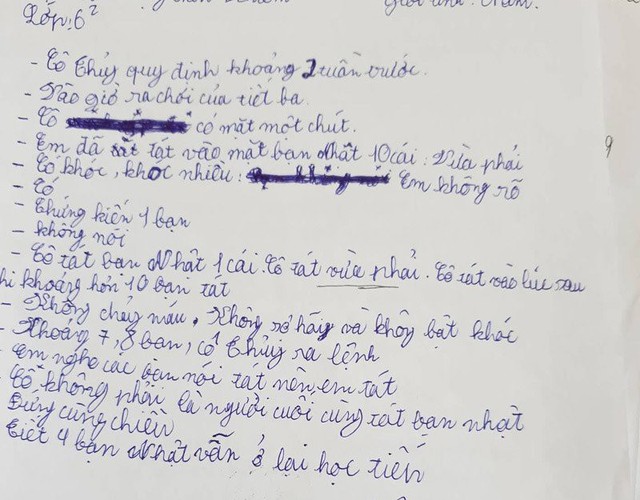 Lớp: 6²
giới tính: Nam.
- Cô Thủy quy định khoảng 2 tuần trước.
- Vào giờ ra chơi của tiết ba.
- Cô có mặt một chút.
- Em đã tát vào mặt bạn Nhật 10 cái: Vừa phải
- Có khóc, khóc nhiều: Em không rõ
- Có
- Chứng kiến 1 bạn
- không nói
- Cô tát bạn Nhật 1 cái. Cô tát vừa phải. Cô tát vào lúc sau
khi khoảng hơn 10 bạn tát
- Không chảy máu, Không và không bật khóc
- Khoảng 7, 8 bạn, cô Thủy ra lệnh
- Em nghe các bạn nói tát nên em tát
Cô không phải là người cuối cùng tát bạn nhật
Đứng cùng chiến
Tiết 4 bạn Nhật vẫn ở lại học tiến
9